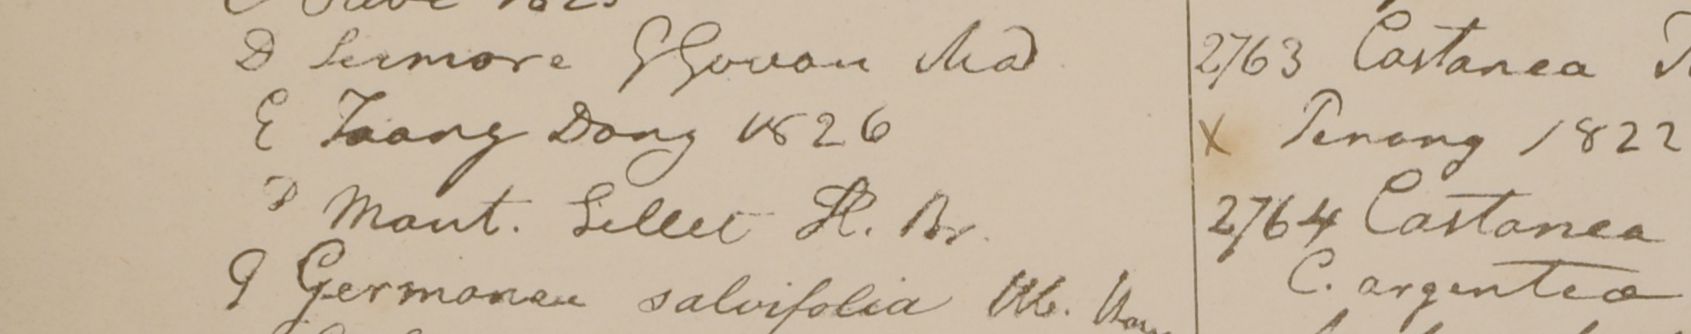 D Sermore G Govan Mad
E Taong Dong 1826
Mont. Sillet H. Br.
G Germanea salvifolia Hb.
2763 Castanea
X Penang 1822
2764 Castanea
C. argentea